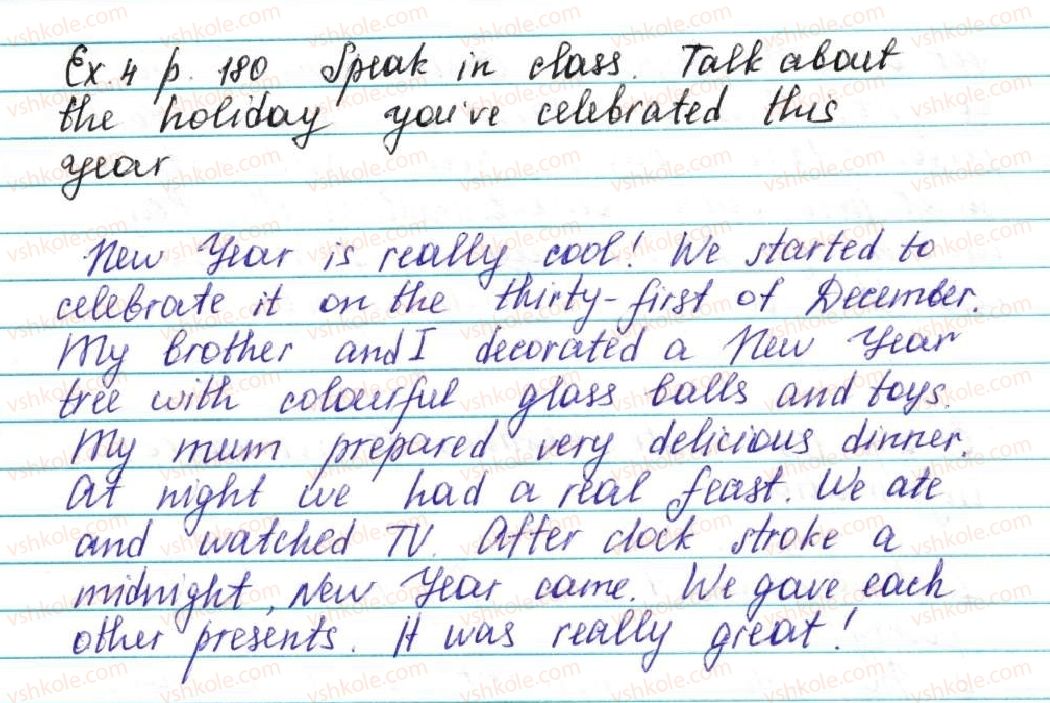 Ex. 4 p. 180 Speak in class. Talk about
the holiday you've celebrated this
year
New Year is really cool! We started to
celebrate it on the thirty-first of December.
My brother and I decorated a New Year
tree with colourful glass balls and toys.
My mum prepared very delicious dinner.
At night we had a real feast. We ate
and watched TV. After clock stroke a
midnight, New Year came. We gave each
other presents. It was really great!